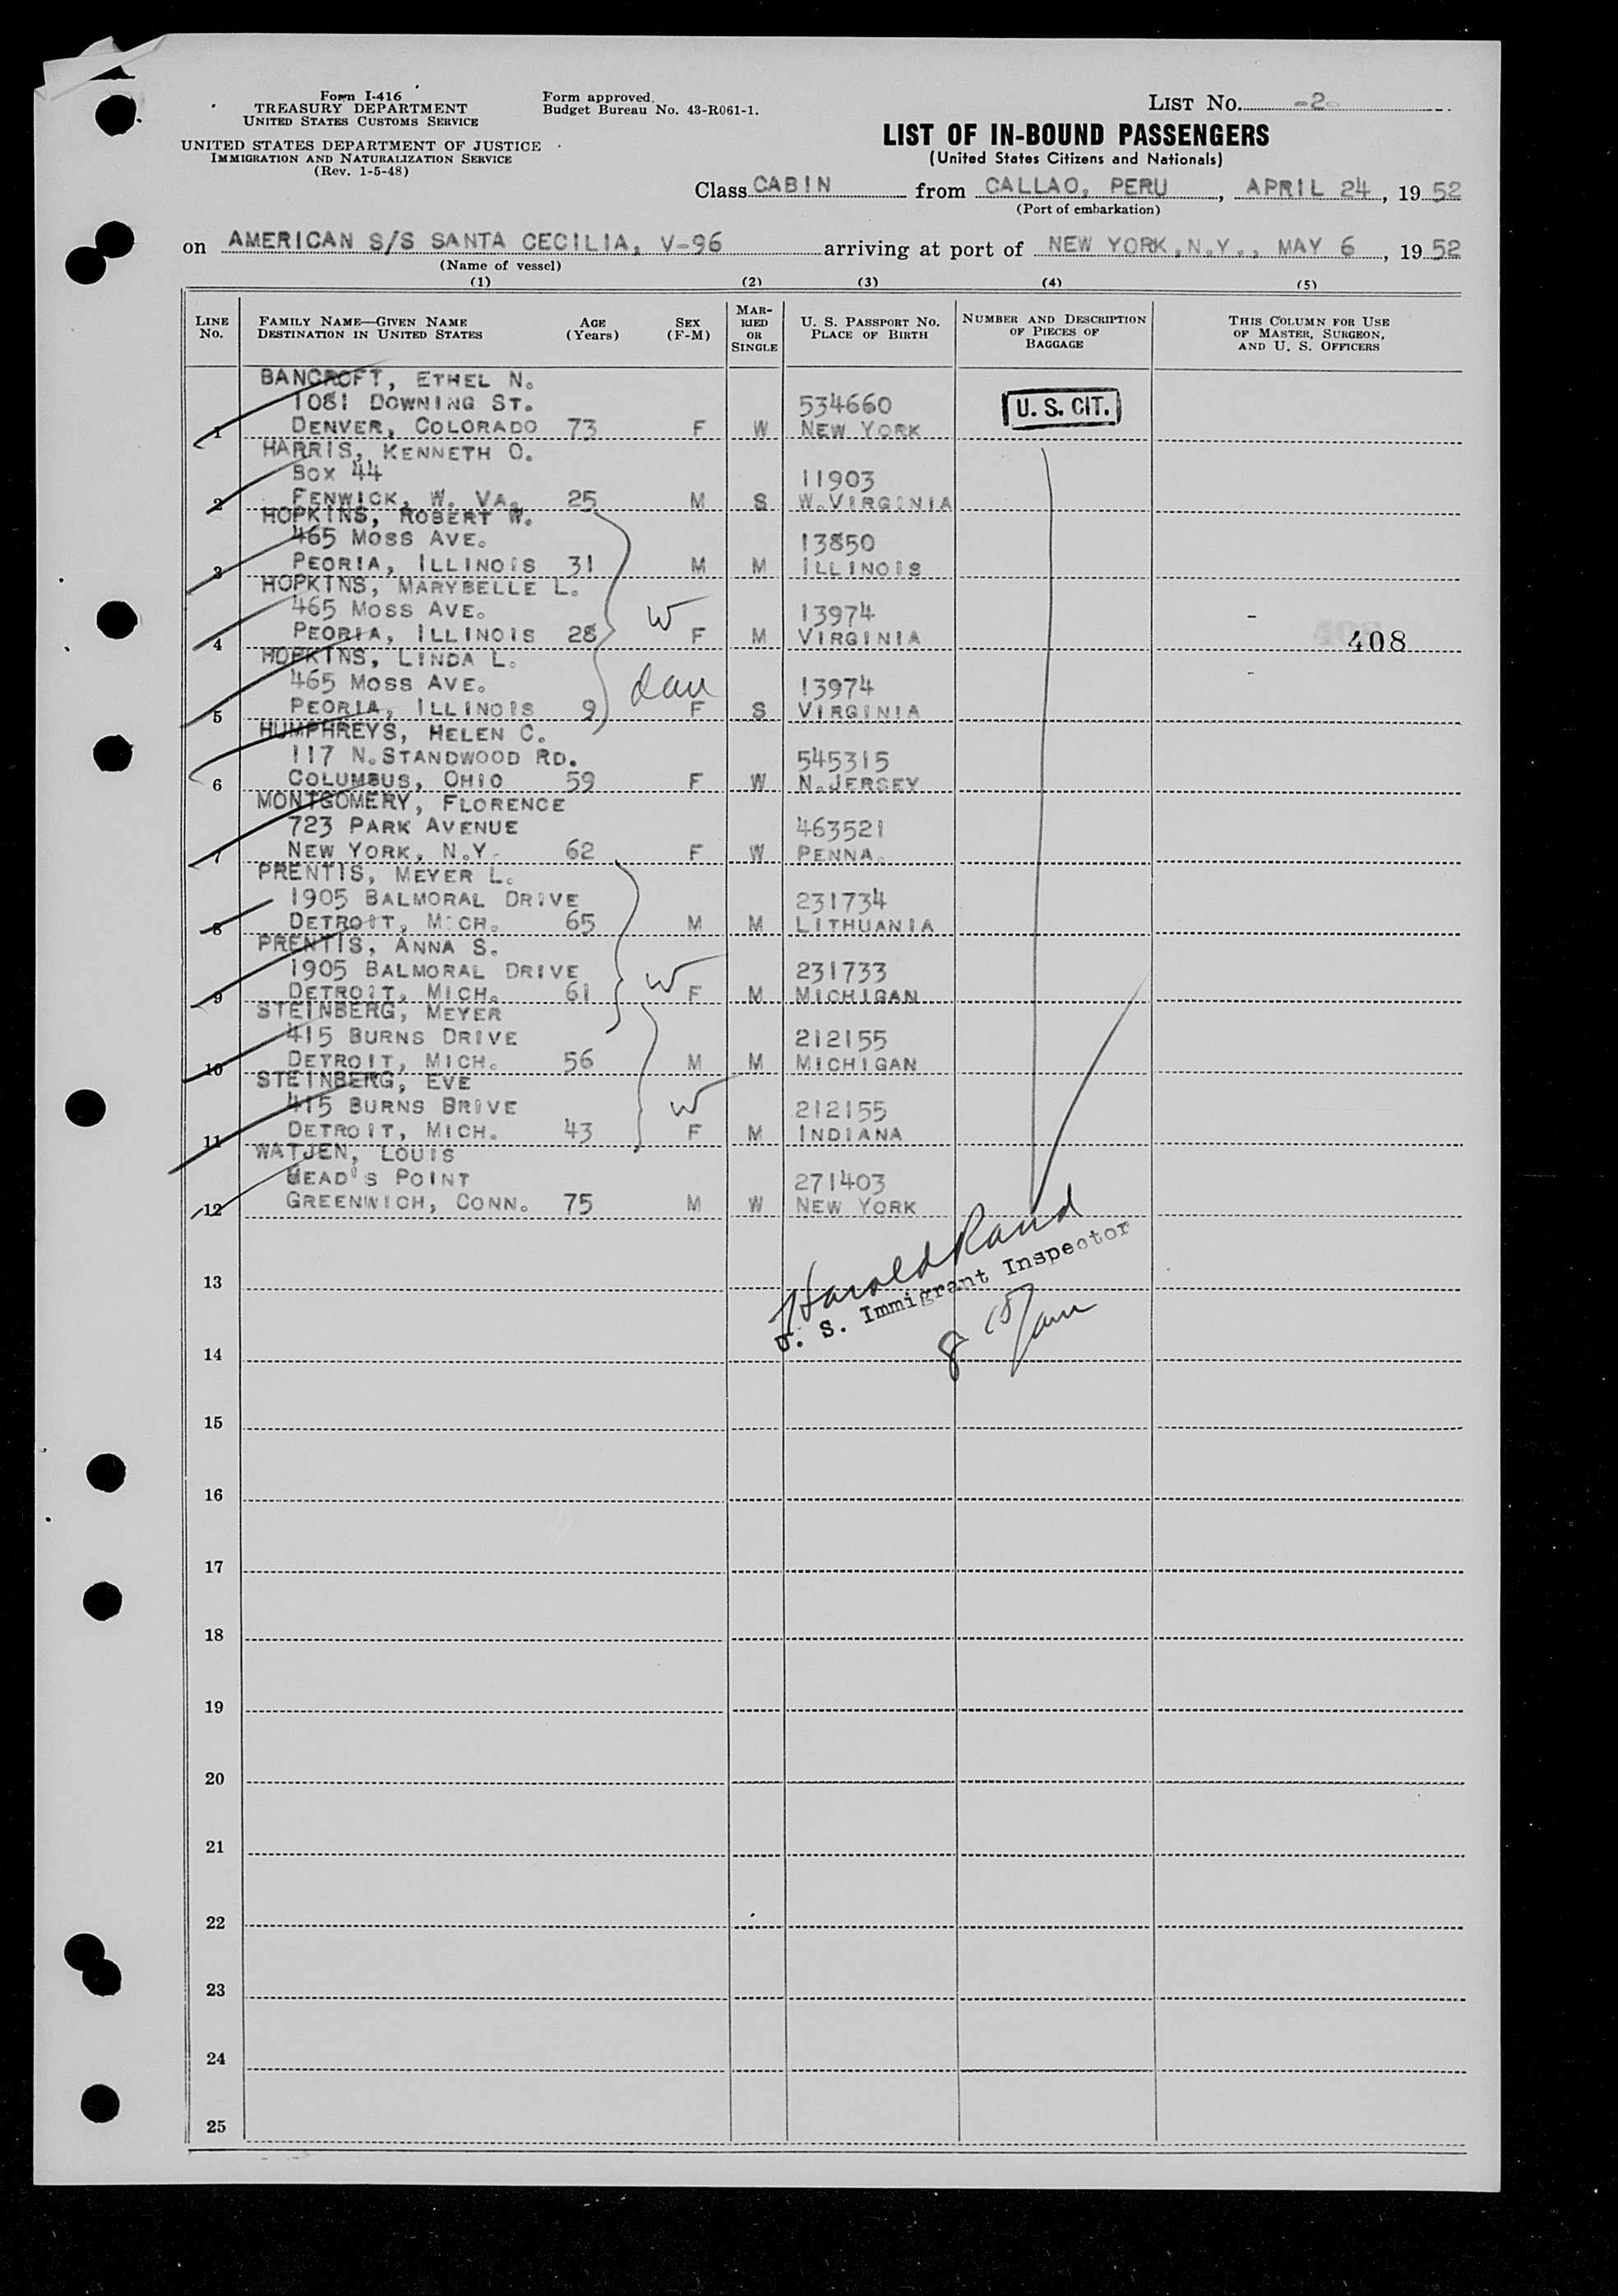 Form I-416
TREASURY DEPARTMENT
UNITED STATES CUSTOMS SERVICE
UNITED STATES DEPARTMENT OF JUSTICE
IMMIGRATION AND NATURALIZATION SERVICE
(Rev. 1-5-48)
Form approved.
Budget Bureau No. 43-R061-1.
LIST NO. -2-
LIST OF IN-BOUND PASSENGERS
(United States Citizens and Nationals)
Class CABIN from CALLAO, PERU, APRIL 24, 1952
(Port of embarkation)
on AMERICAN S/S SANTA CECILIA, V-96 arriving at port of NEW YORK, N.Y., MAY 6, 1952
(Name of vessel)
(1) (2) (3) (4) (5)
LINE No.
FAMILY NAME—GIVEN NAME
DESTINATION IN UNITED STATES
AGE
(Years)
SEX
(F-M)
MARRIED OR SINGLE
U. S. PASSPORT NO.
PLACE OF BIRTH
NUMBER AND DESCRIPTION
OF PIECES OF
BAGGAGE
THIS COLUMN FOR USE
OF MASTER, SURGEON,
AND U. S. OFFICERS
BANCROFT, ETHEL N.
1081 DOWNING ST. 534660 U. S. CIT.
1 DENVER, COLORADO 73 F W NEW YORK
HARRIS, KENNETH O.
BOX 44 11903
2 FENWICK, W. VA. 25 M S W.VIRGINIA
HOPKINS, ROBERT W.
465 MOSS AVE. 13850
3 PEORIA, ILLINOIS 31 M M ILLINOIS
HOPKINS, MARYBELLE L.
465 MOSS AVE. W 13974
4 PEORIA, ILLINOIS 28 F M VIRGINIA 408
HOPKINS, LINDA L.
465 MOSS AVE. dau 13974
5 PEORIA, ILLINOIS 9 F S VIRGINIA
HUMPHREYS, HELEN C.
117 N.STANDWOOD RD. 545315
6 COLUMBUS, OHIO 59 F W N.JERSEY
MONTGOMERY, FLORENCE
723 PARK AVENUE 463521
7 NEW YORK, N.Y. 62 F W PENNA.
PRENTIS, MEYER L.
1905 BALMORAL DRIVE 231734
8 DETROIT, MICH. 65 M M LITHUANIA
PRENTIS, ANNA S.
1905 BALMORAL DRIVE W 231733
9 DETROIT, MICH. 61 F M MICHIGAN
STEINBERG, MEYER
415 BURNS DRIVE 212155
10 DETROIT, MICH. 56 M M MICHIGAN
STEINBERG, EVE
415 BURNS DRIVE W 212155
11 DETROIT, MICH. 43 F M INDIANA
WATJEN, LOUIS
MEAD'S POINT 271403
12 GREENWICH, CONN. 75 M W NEW YORK
Harold Rand
U. S. Immigrant Inspector
8 15/am
13
14
15
16
17
18
19
20
21
22
23
24
25